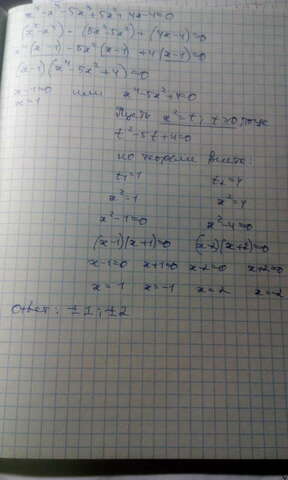 x⁵-x⁴-5x³+5x²+4x-4=0
(x⁵-x⁴)-(5x³-5x²)+(4x-4)=0
x⁴(x-1)-5x²(x-1)+4(x-1)=0
(x-1)(x⁴-5x²+4)=0
x-1=0 или x⁴-5x²+4=0
x=1
Пусть x²=t, t≥0, тогда
t²-5t+4=0
по теореме Виета:
t₁=1 t₂=4
x²=1 x²=4
x²-1=0 x²-4=0
(x-1)(x+1)=0 (x-2)(x+2)=0
x-1=0 x+1=0 x-2=0 x+2=0
x=1 x=-1 x=2 x=-2
Ответ: ±1; ±2